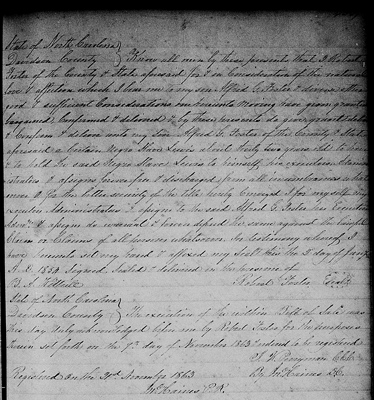 State of North Carolina
Davidson County Know all men by these presents that I Robert
Foster of the County & State aforesaid for & in Consideration of the natural
love & affection which I bear to my son Alfred G. Foster & divers other
good & sufficient Considerations me moving have given granted
bargained Confirmed & delivered & by these presents do give grant
& Confirm & deliver unto my son Alfred G. Foster of the County & State
aforesaid a Certain Negro Slave Lewis about thirty two years old to have
& to hold the said Negro Slave Lewis to himself, his executors Admin
istrators & assigns forever free & discharged from all incumbrances what
ever & for the better security of the title hereby Conveyed I for myself my
executors Administrators & assigns to the said Alfred G. Foster his Executors
& assigns do warrant & forever defend the same against the lawful
Claim or Claims of all persons whatsoever. In testimony whereof I
have hereunto set my hand & affixed my Seal this the 2 day of
A.D. 1853 Signed Sealed & delivered in the presence of
B. I. Robert Foster Seal
State of North Carolina
Davidson County The execution of the within Deed of Gift was
this day duly acknowledged before me by Robert Foster for the purposes
therein set forth on the 9th day of November 1863 ordered to be registered
Clk
By DC
Registered on the 21st November 1863
P.R.